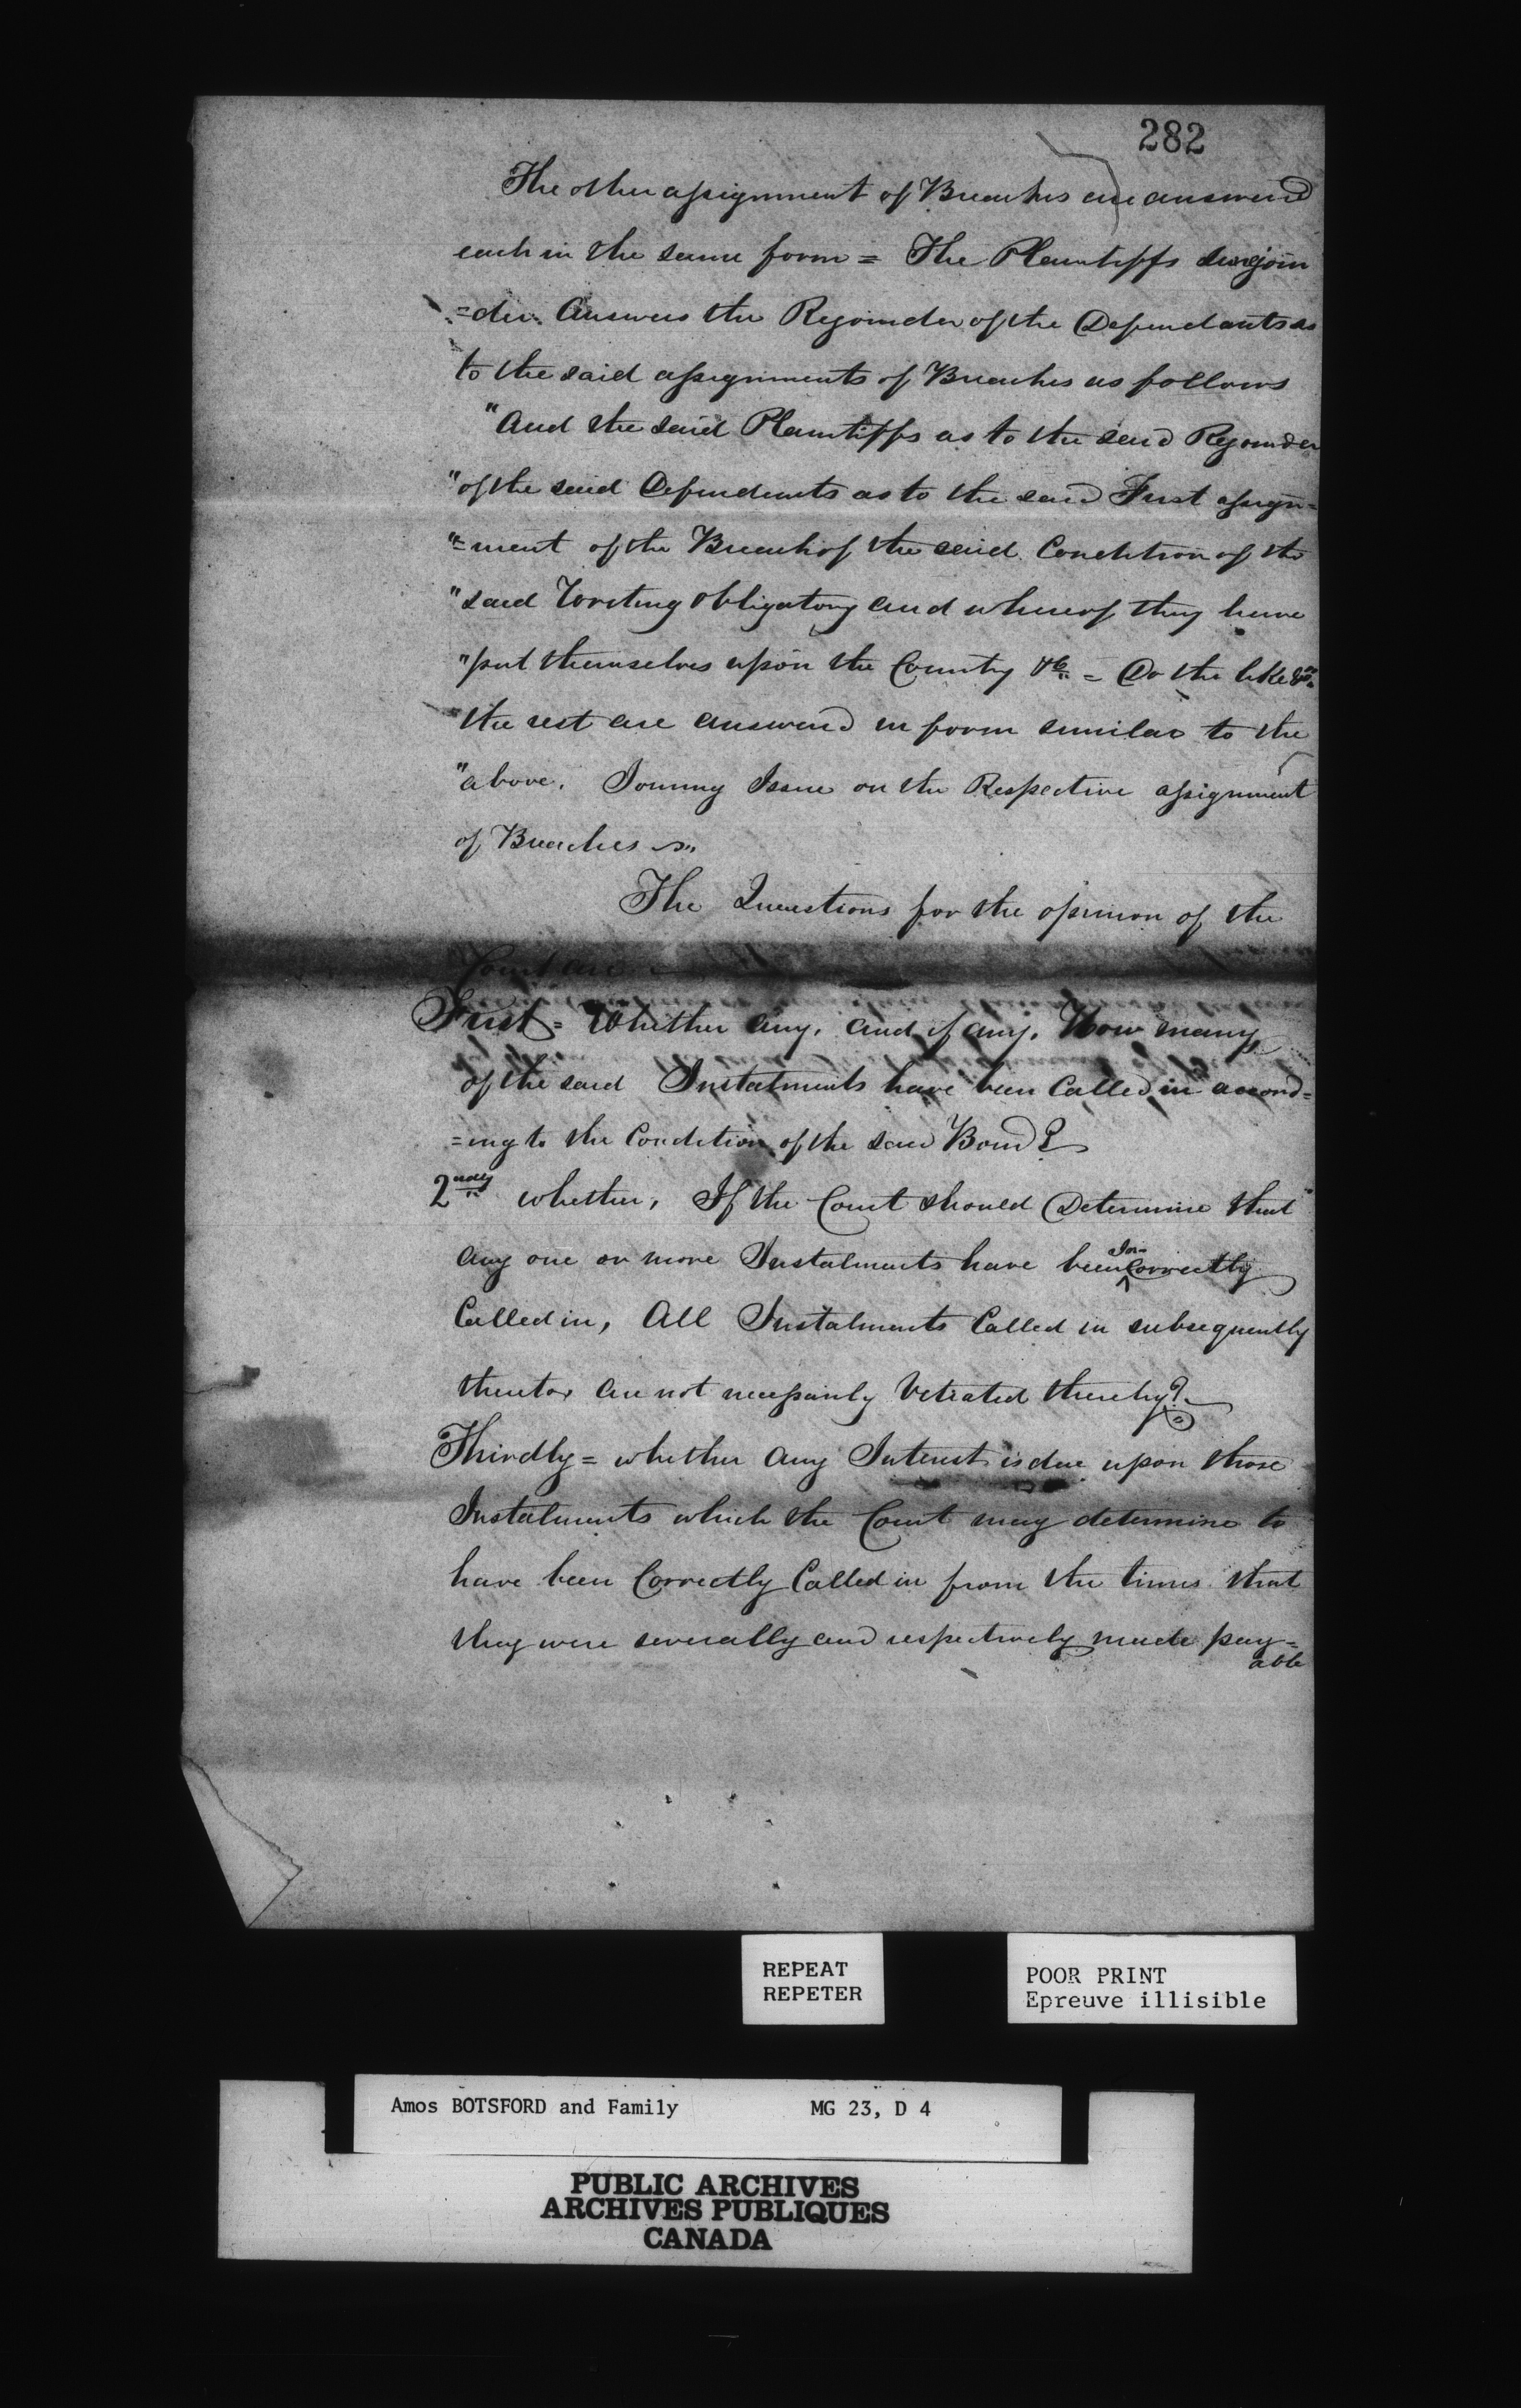 282
The other assignment of Breaches are answered
each in the same form = The Plaintiffs surrejoin
=der Answers the Rejoinder of the Defendants as
to the said assignments of Breaches as follows
"And the said Plaintiffs as to the said Rejoinder
"of the said Defendants as to the said First assign=
"=ment of the Breach of the said Condition of the
"said Writing obligatory and whereof they have
"put themselves upon the Country &c = Do the like &c
"the rest are answered in form similar to the
"above. Joining Issue on the Respective assignment
of Breaches
The Questions for the opinion of the
Court are
First = Whether any, and if any, How many
of the said Instalments have been Called in accord=
=ing to the Condition of the said Bond?
2ndly whether, If the Court should Determine that
any one or more Instalments have been InCorrectly
Called in, All Instalments Called in subsequently
thereto are not necessarily Vitiated thereby?
Thirdly = whether any Interest is due upon those
Instalments which the Court may determine to
have been Correctly Called in from the times that
they were severally and respectively made pay=
able
REPEAT
REPETER
POOR PRINT
Epreuve illisible
Amos BOTSFORD and Family MG 23, D 4
PUBLIC ARCHIVES
ARCHIVES PUBLIQUES
CANADA